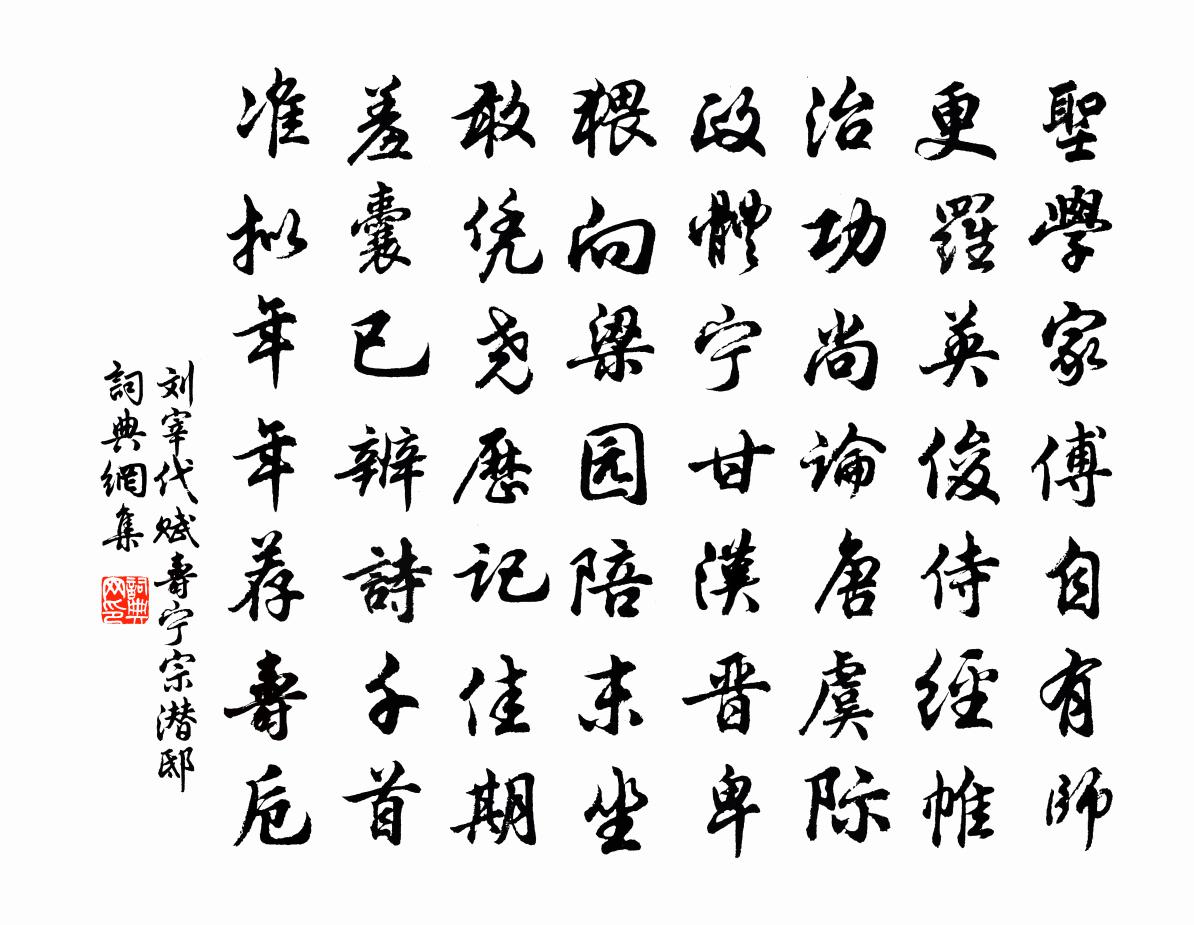 聖學家傅自有師
更羅英俊侍經帷
治功尚論唐虞际
政體宁甘漢晋卑
猥向梁园陪末坐
敢凭尧歷记佳期
羞囊已辦詩千首
准拟年年荐壽卮
刘宰代赋壽宁宗潜邸
詞典網集
詞典网印